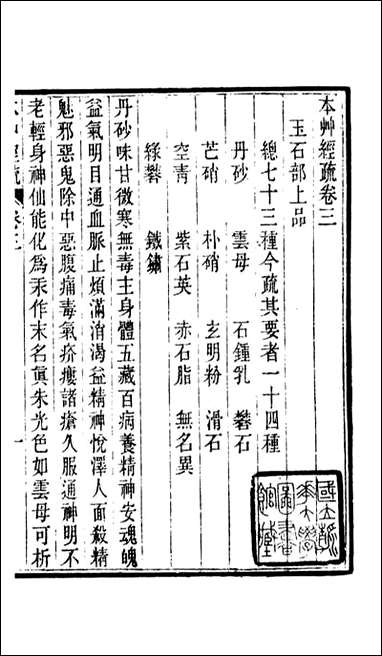 本艸經疏卷三
玉石部上品
總七十三種今疏其要者一十四種
丹砂 雲母 石鍾乳 礬石
芒硝 朴硝 玄明粉 滑石
空青 紫石英 赤石脂 無名異
綠礬 鐵鏽
丹砂味甘微寒無毒主身體五藏百病養精神安魂魄
益氣明目通血脈止煩滿消渴益精神悅澤人面殺精
魅邪惡鬼除中惡腹痛毒氣疥瘻諸瘡久服通神明不
老輕身神仙能化爲汞作末名眞朱光色如雲母可析
本艸經疏 卷三 一